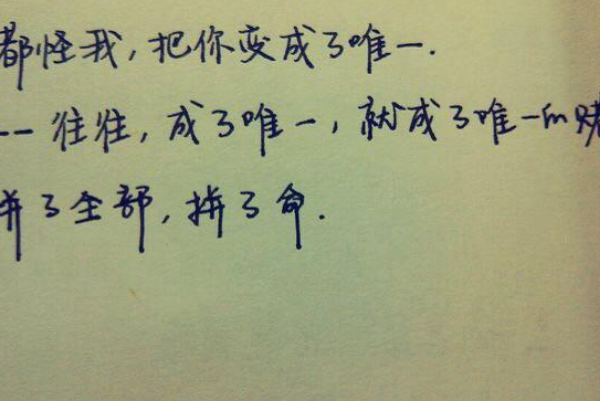 都怪我,把你变成了唯一.
-- 往往,成了唯一,就成了唯一的赌
拼了全部,拼了命.